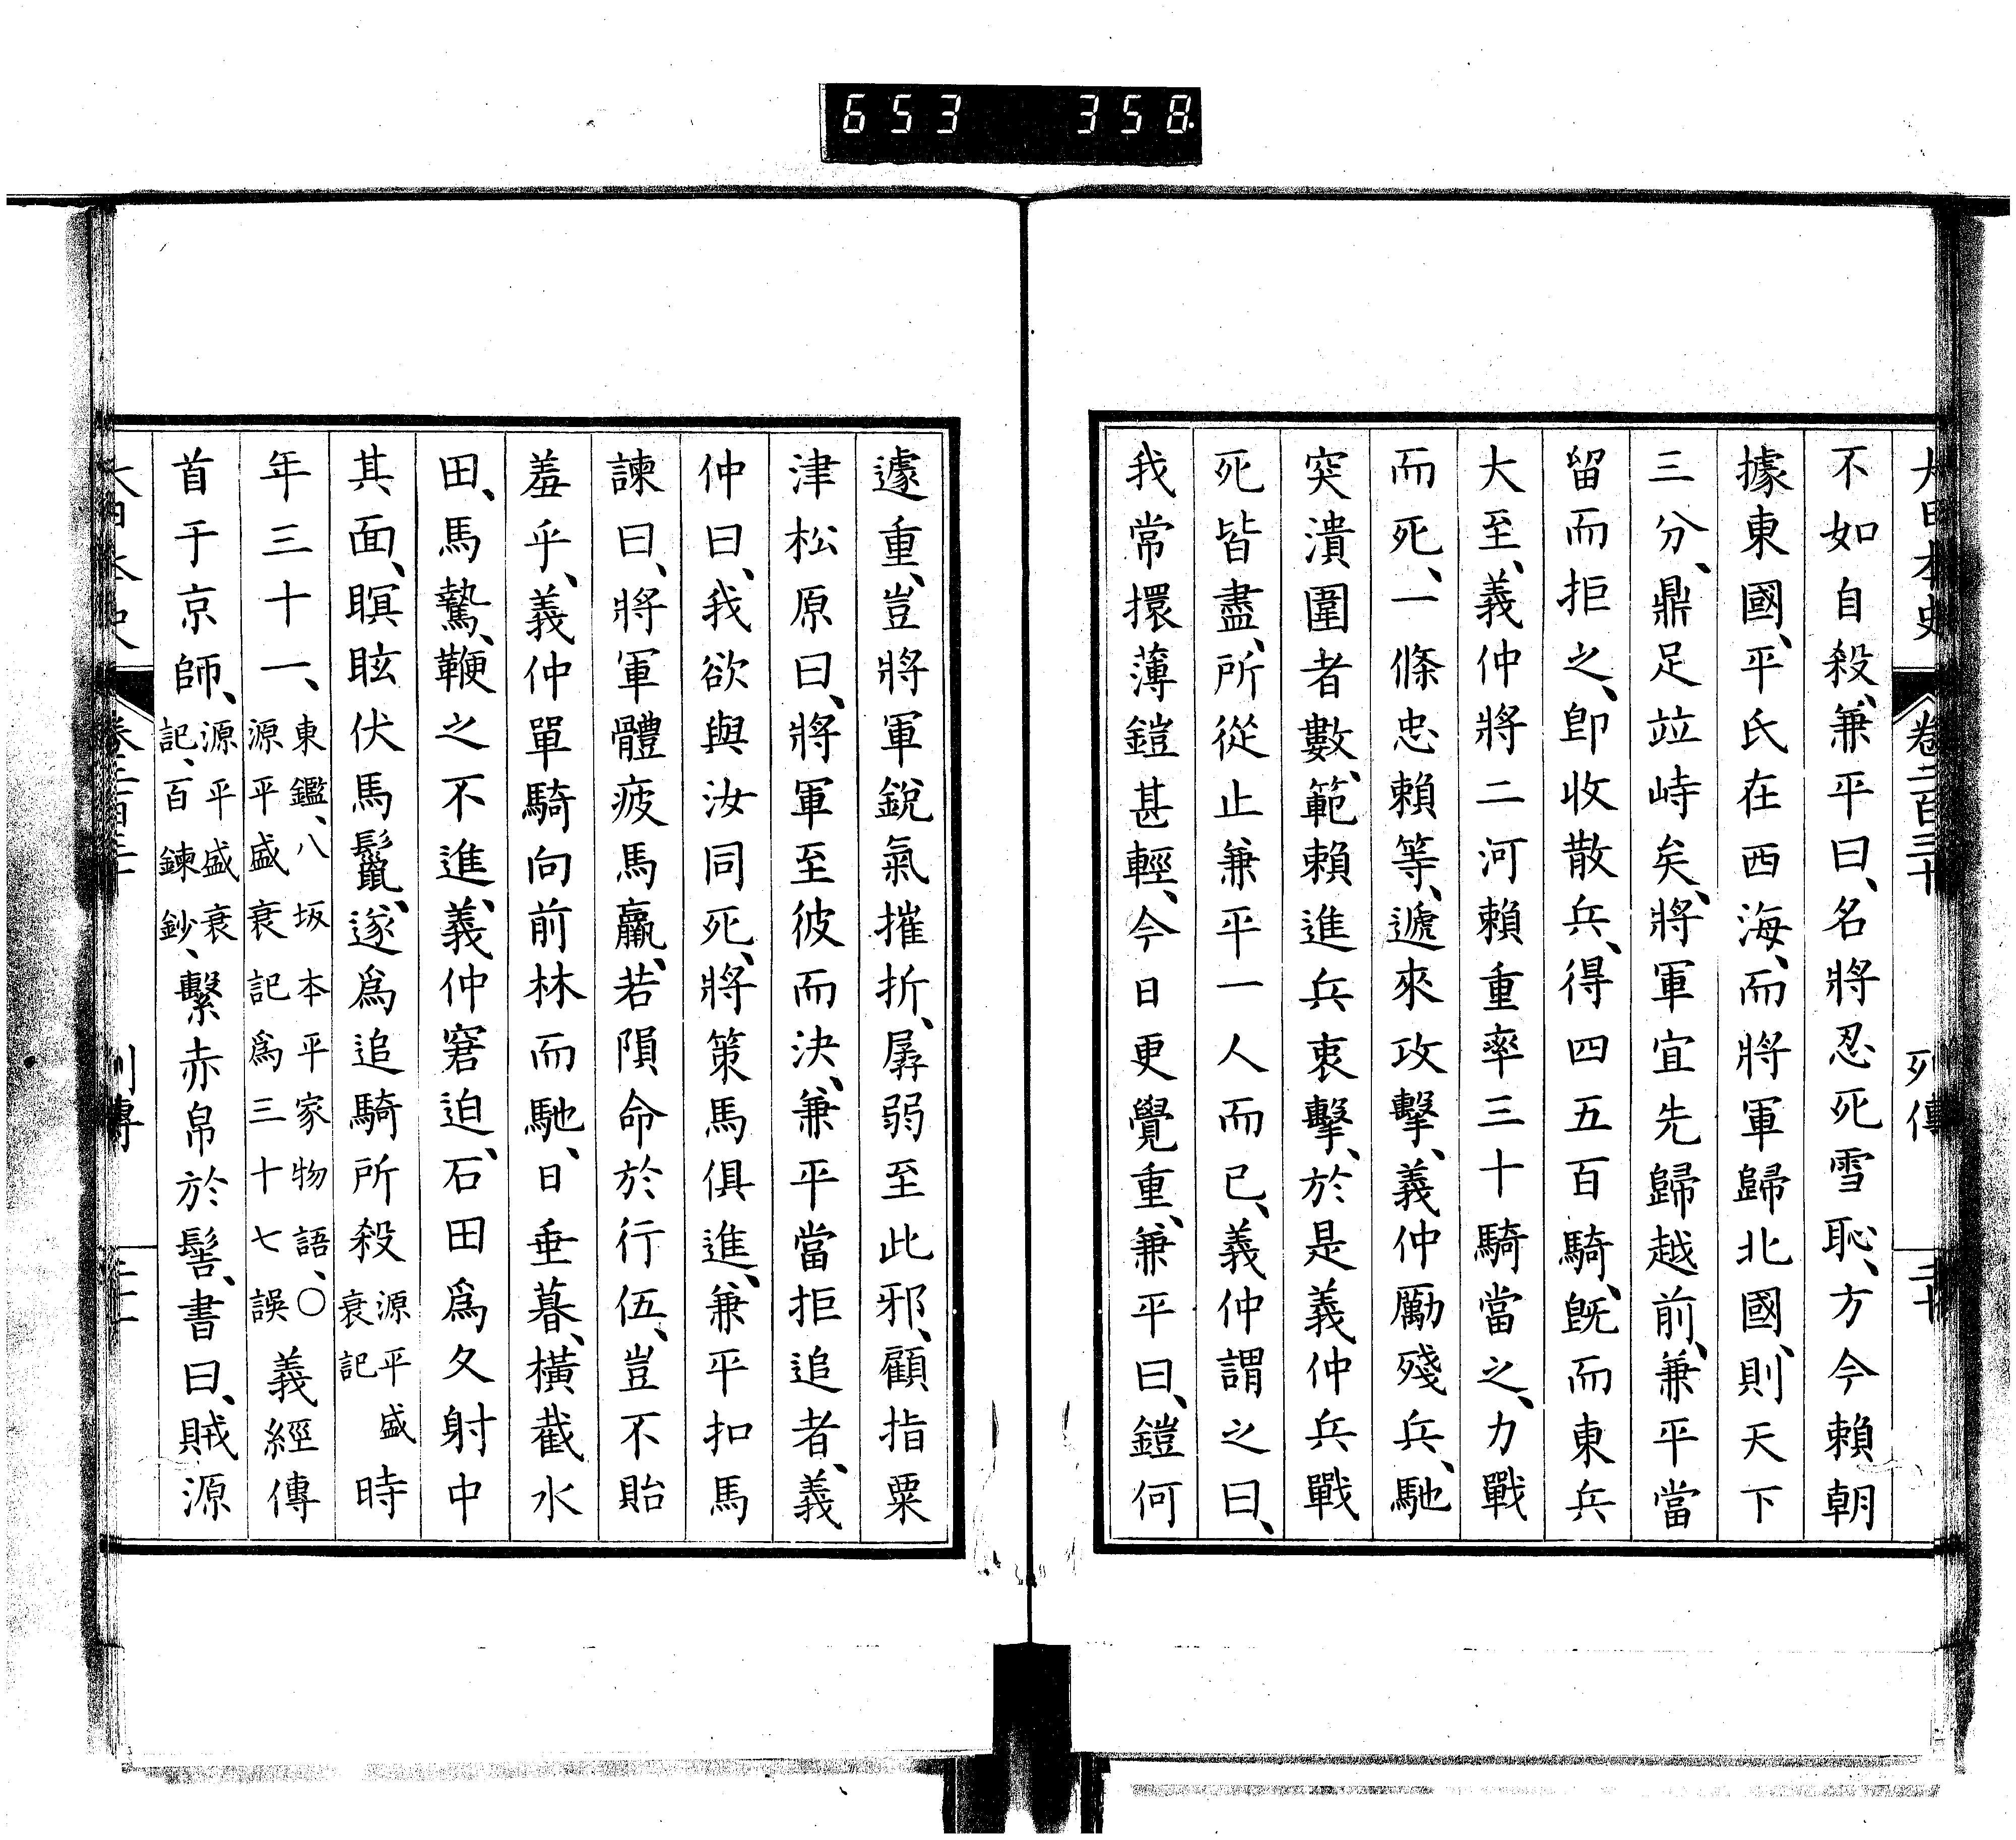 653 358.
大日本史 卷二百三十 列傳 三十
不如自殺、兼平曰、名將忍死雪恥、方今賴朝
據東國、平氏在西海、而將軍歸北國、則天下
三分、鼎足竝峙矣、將軍宜先歸越前、兼平當
留而拒之、卽收散兵、得四五百騎、旣而東兵
大至、義仲將二河賴重率三十騎當之、力戰
而死、一條忠賴等、遞來攻擊、義仲勵殘兵、馳
突潰圍者數、範賴進兵衷擊、於是義仲兵戰
死皆盡、所從止兼平一人而已、義仲謂之曰、
我常擐薄鎧甚輕、今日更覺重、兼平曰、鎧何
遽重、豈將軍銳氣摧折、孱弱至此邪、顧指粟
津松原曰、將軍至彼而決、兼平當拒追者、義
仲曰、我欲與汝同死、將策馬俱進、兼平扣馬
諫曰、將軍體疲馬羸、若隕命於行伍、豈不貽
羞乎、義仲單騎向前林而馳、日垂暮、橫截水
田、馬驚、鞭之不進、義仲窘迫、石田爲久射中
其面、瞑眩伏馬鬣、遂爲追騎所殺源平盛衰記時
年三十一、東鑑、八坂本平家物語、○源平盛衰記爲三十七誤義經傳
首于京師、源平盛衰記、百鍊鈔、繫赤帛於髻、書曰、賊源
大日本史 列傳